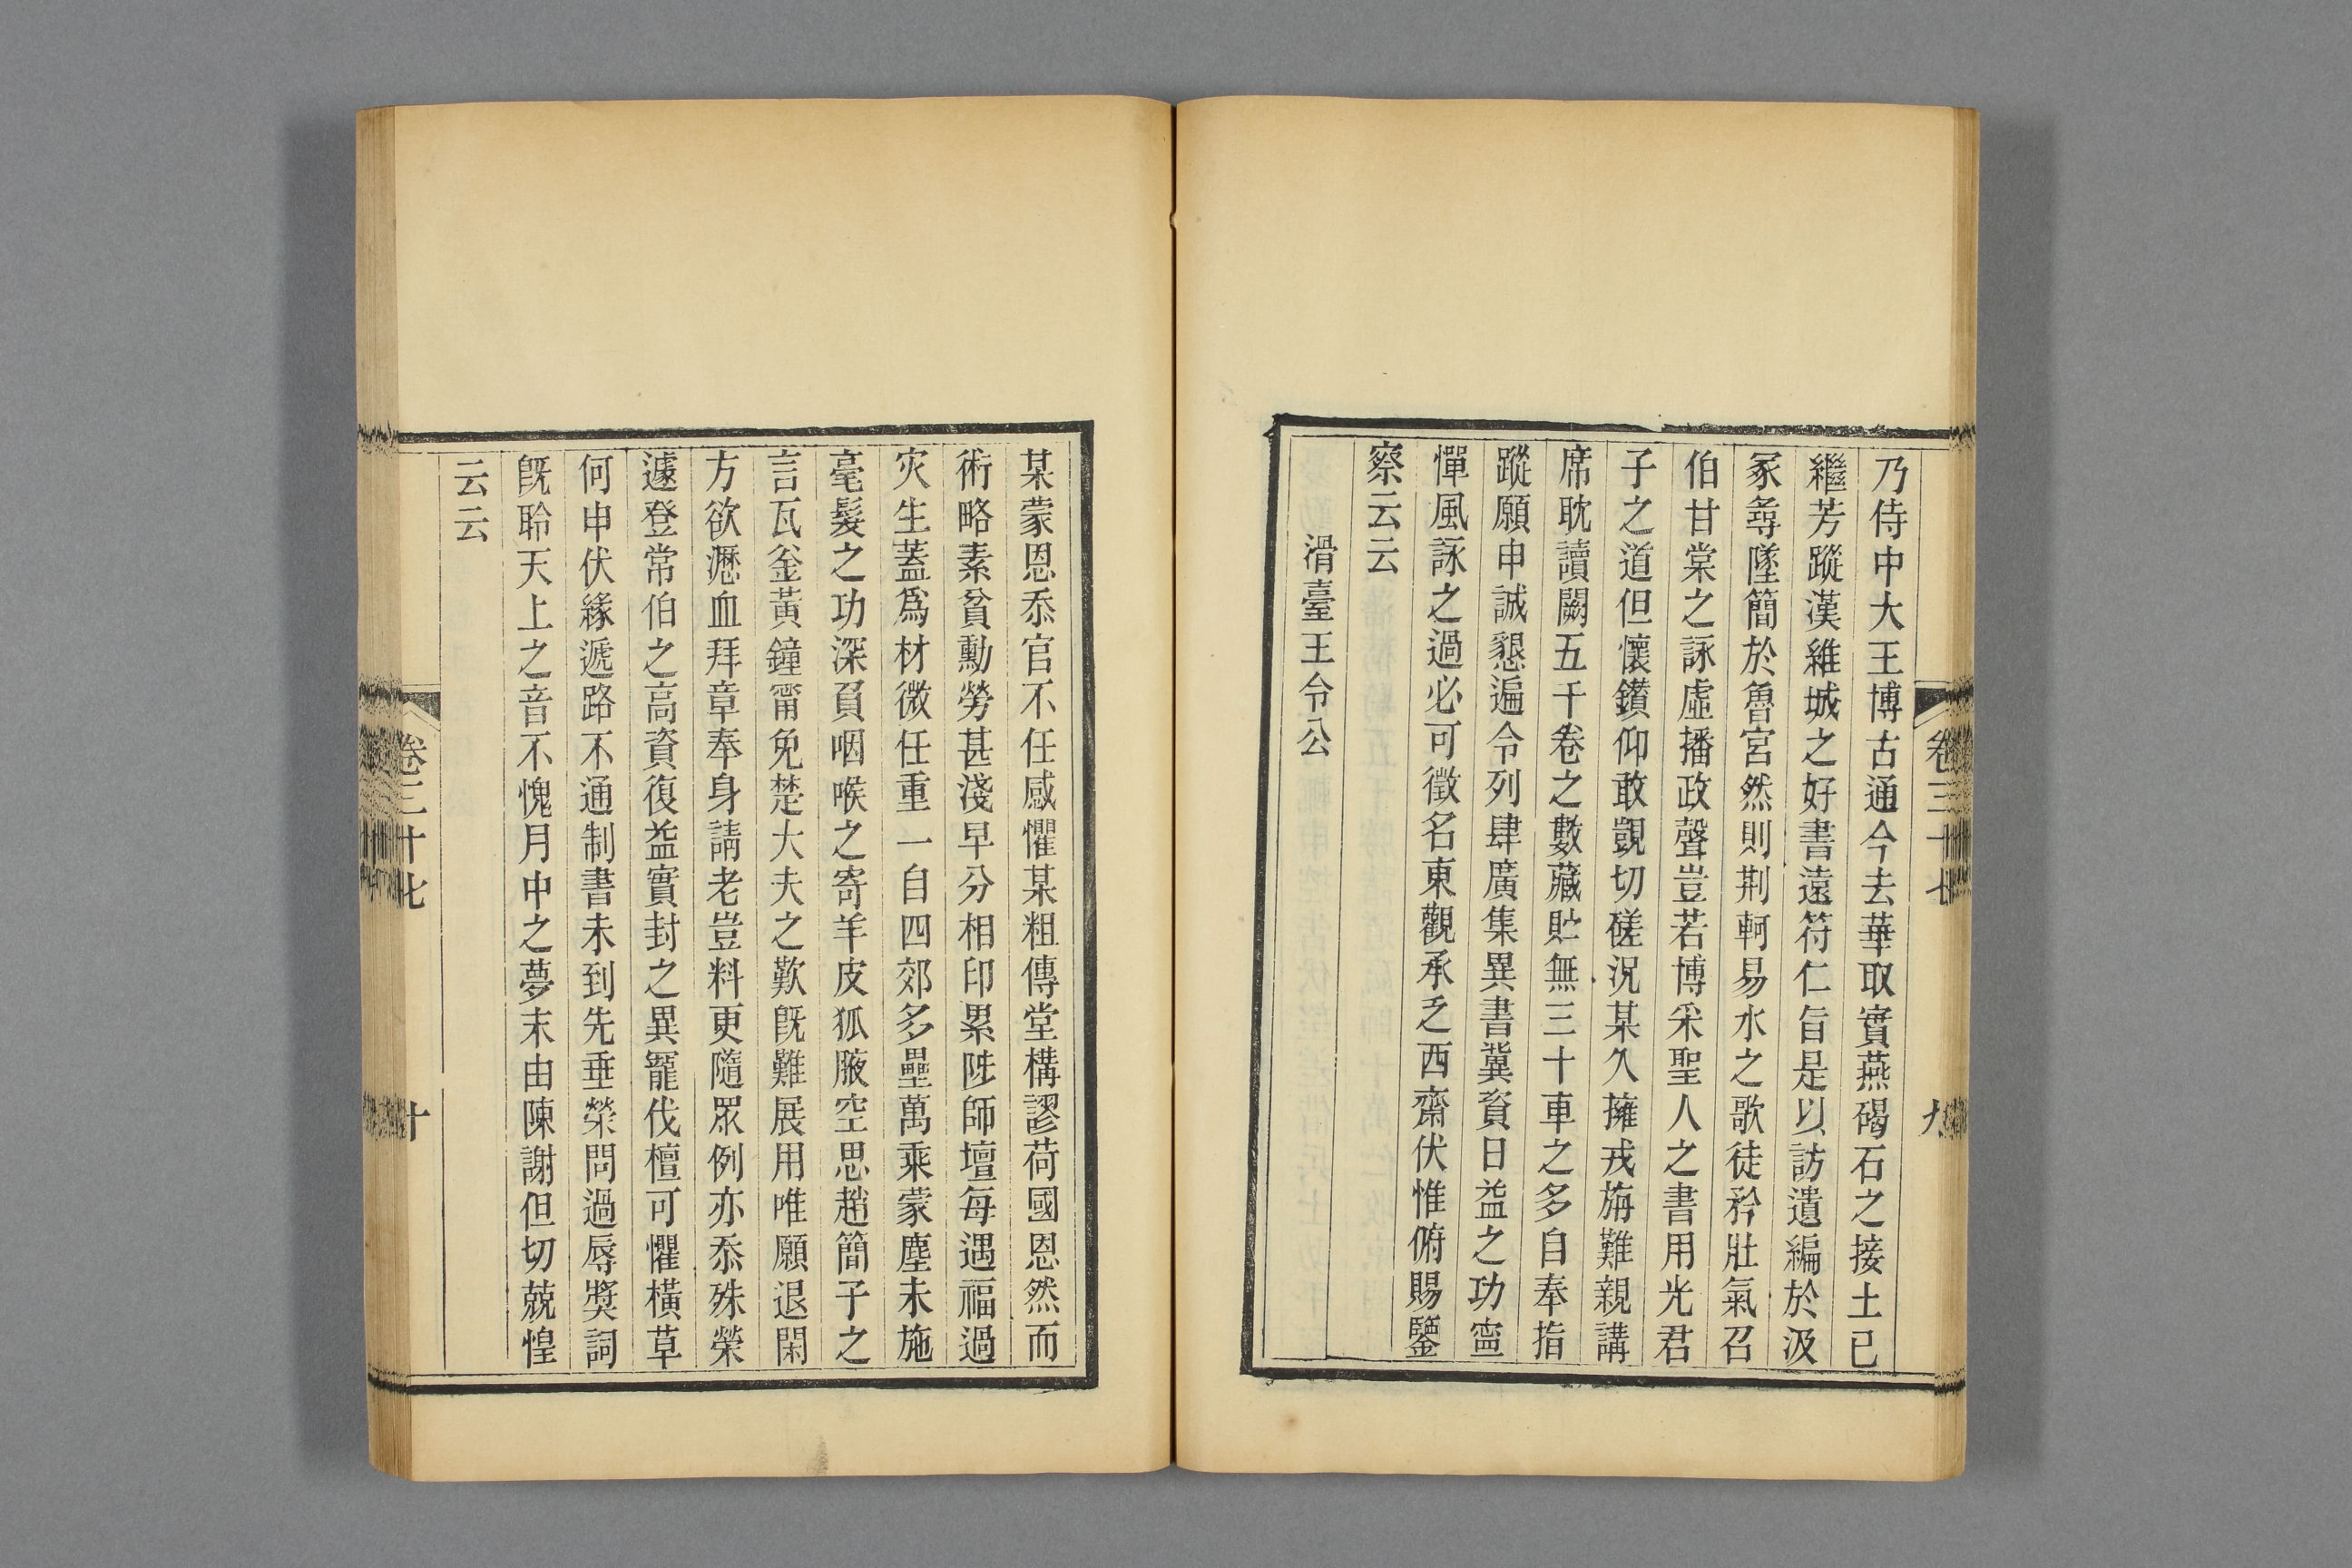 乃侍中大王博古通今去華取實燕碣石之接士已
繼芳蹤漢雒城之好書遠符仁旨是以訪遺編於汲
冢尋墜簡於魯宮然則荆軻易水之歌徒矜壯氣召
伯甘棠之詠虛播政聲豈若博采聖人之書用光君
子之道但懷鑽仰敢覬切磋況某久擁戎旃難親講
席耽讀闕五千卷之數藏貯無三十車之多自奉指
蹤願申誠懇遍令列肆廣集異書冀資日益之功寧
憚風詠之過必可徵名東觀承乏西齋伏惟俯賜鑒
察云云
滑臺王令公
卷三十七
九
某蒙恩忝官不任感懼某粗傳堂構謬荷國恩然而
術略素貧勳勞甚淺早分相印累陟師壇每遇福過
灾生蓋爲材微任重一自四郊多壘萬乘蒙塵未施
毫髮之功深負咽喉之寄羊皮狐腋空思趙簡子之
言瓦釜黃鐘甯免楚大夫之歎旣難展用唯願退閑
方欲瀝血拜章奉身請老豈料更隨眾例亦忝殊榮
遽登常伯之高資復益實封之異寵伐檀可懼橫草
何申伏緣遞路不通制書未到先垂榮問過辱獎詞
旣聆天上之音不愧月中之夢末由陳謝但切兢惶
云云
卷三十七
十